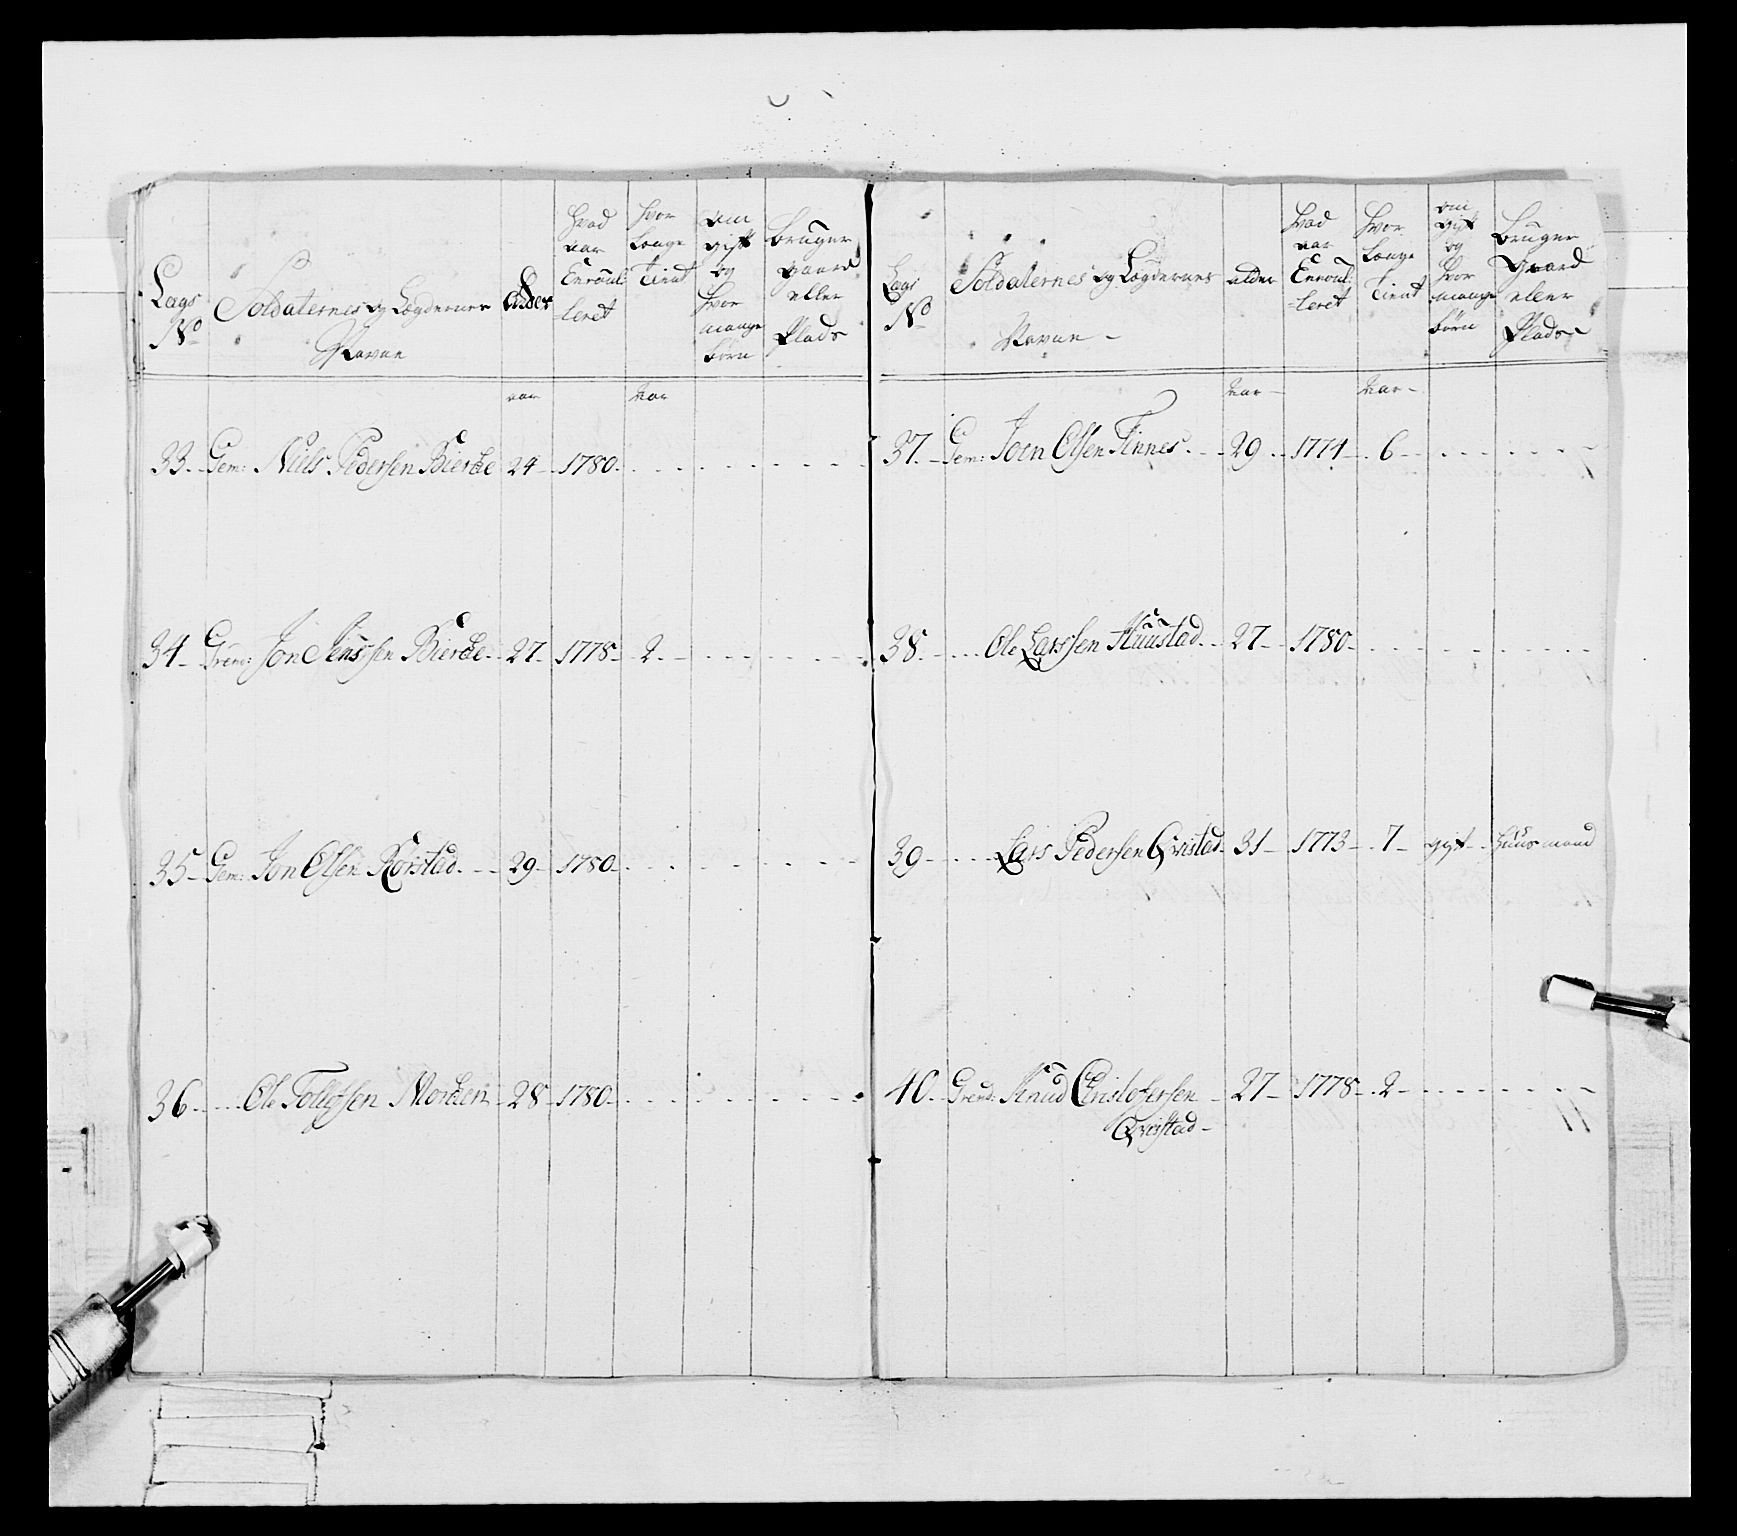 Lags No
Soldaternes og Lægdernes Navne
Alder
Hvad aar Enroul-leret
Hvor Længe Tient
Om gift og Hvor mange børn
Bruger Gaard eller Plads
aar aar
33. Gem: Niels Pedersen Bierche 24 1780
34 Gren: Jon Jenssen Bierche 27 1778 2
35 Gem: Jon Olsen Rørstad 29 1780
36 Ole Tollofsen Morden 28 1780
Lags No
Soldaternes og Lægdernes Navne
alder
Hvad aar Enroul-leret
Hvor Længe Tient
om gift og Hvor mange børn
Bruger Gaard eller Plads
aar aar
37. Gem: Joen Olsen Finnes 29 1774 6
38. Ole Larssen Huustad 27 1780
39 Lars Pedersen Qvistad 31 1773 7 gift Huusmand
40. Gren: Knud Christofersen 27 1778 2
Qveistad